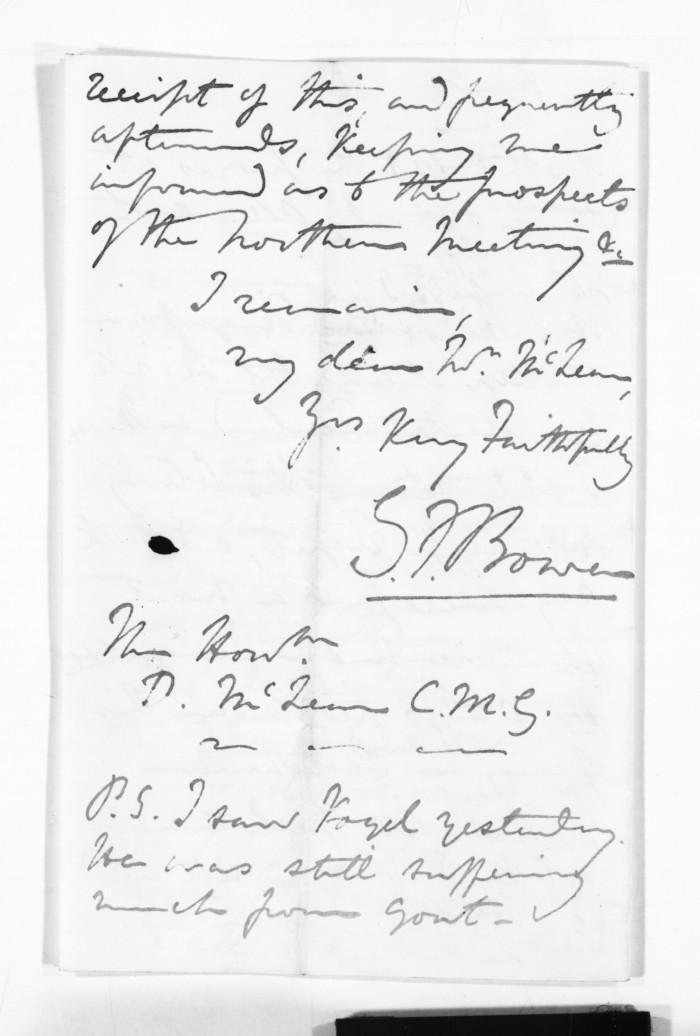 receipt of this, and frequently
afterwards, keeping me
informed as to the prospects
of the Northern Meeting &c.
I remain,
my dear Mr. McLean,
Yrs. Very Faithfully
G.F. Bowen
The Honble.
D. McLean C.M.G.
P.S. I saw Vogel yesterday.
He was still suffering
much from gout -